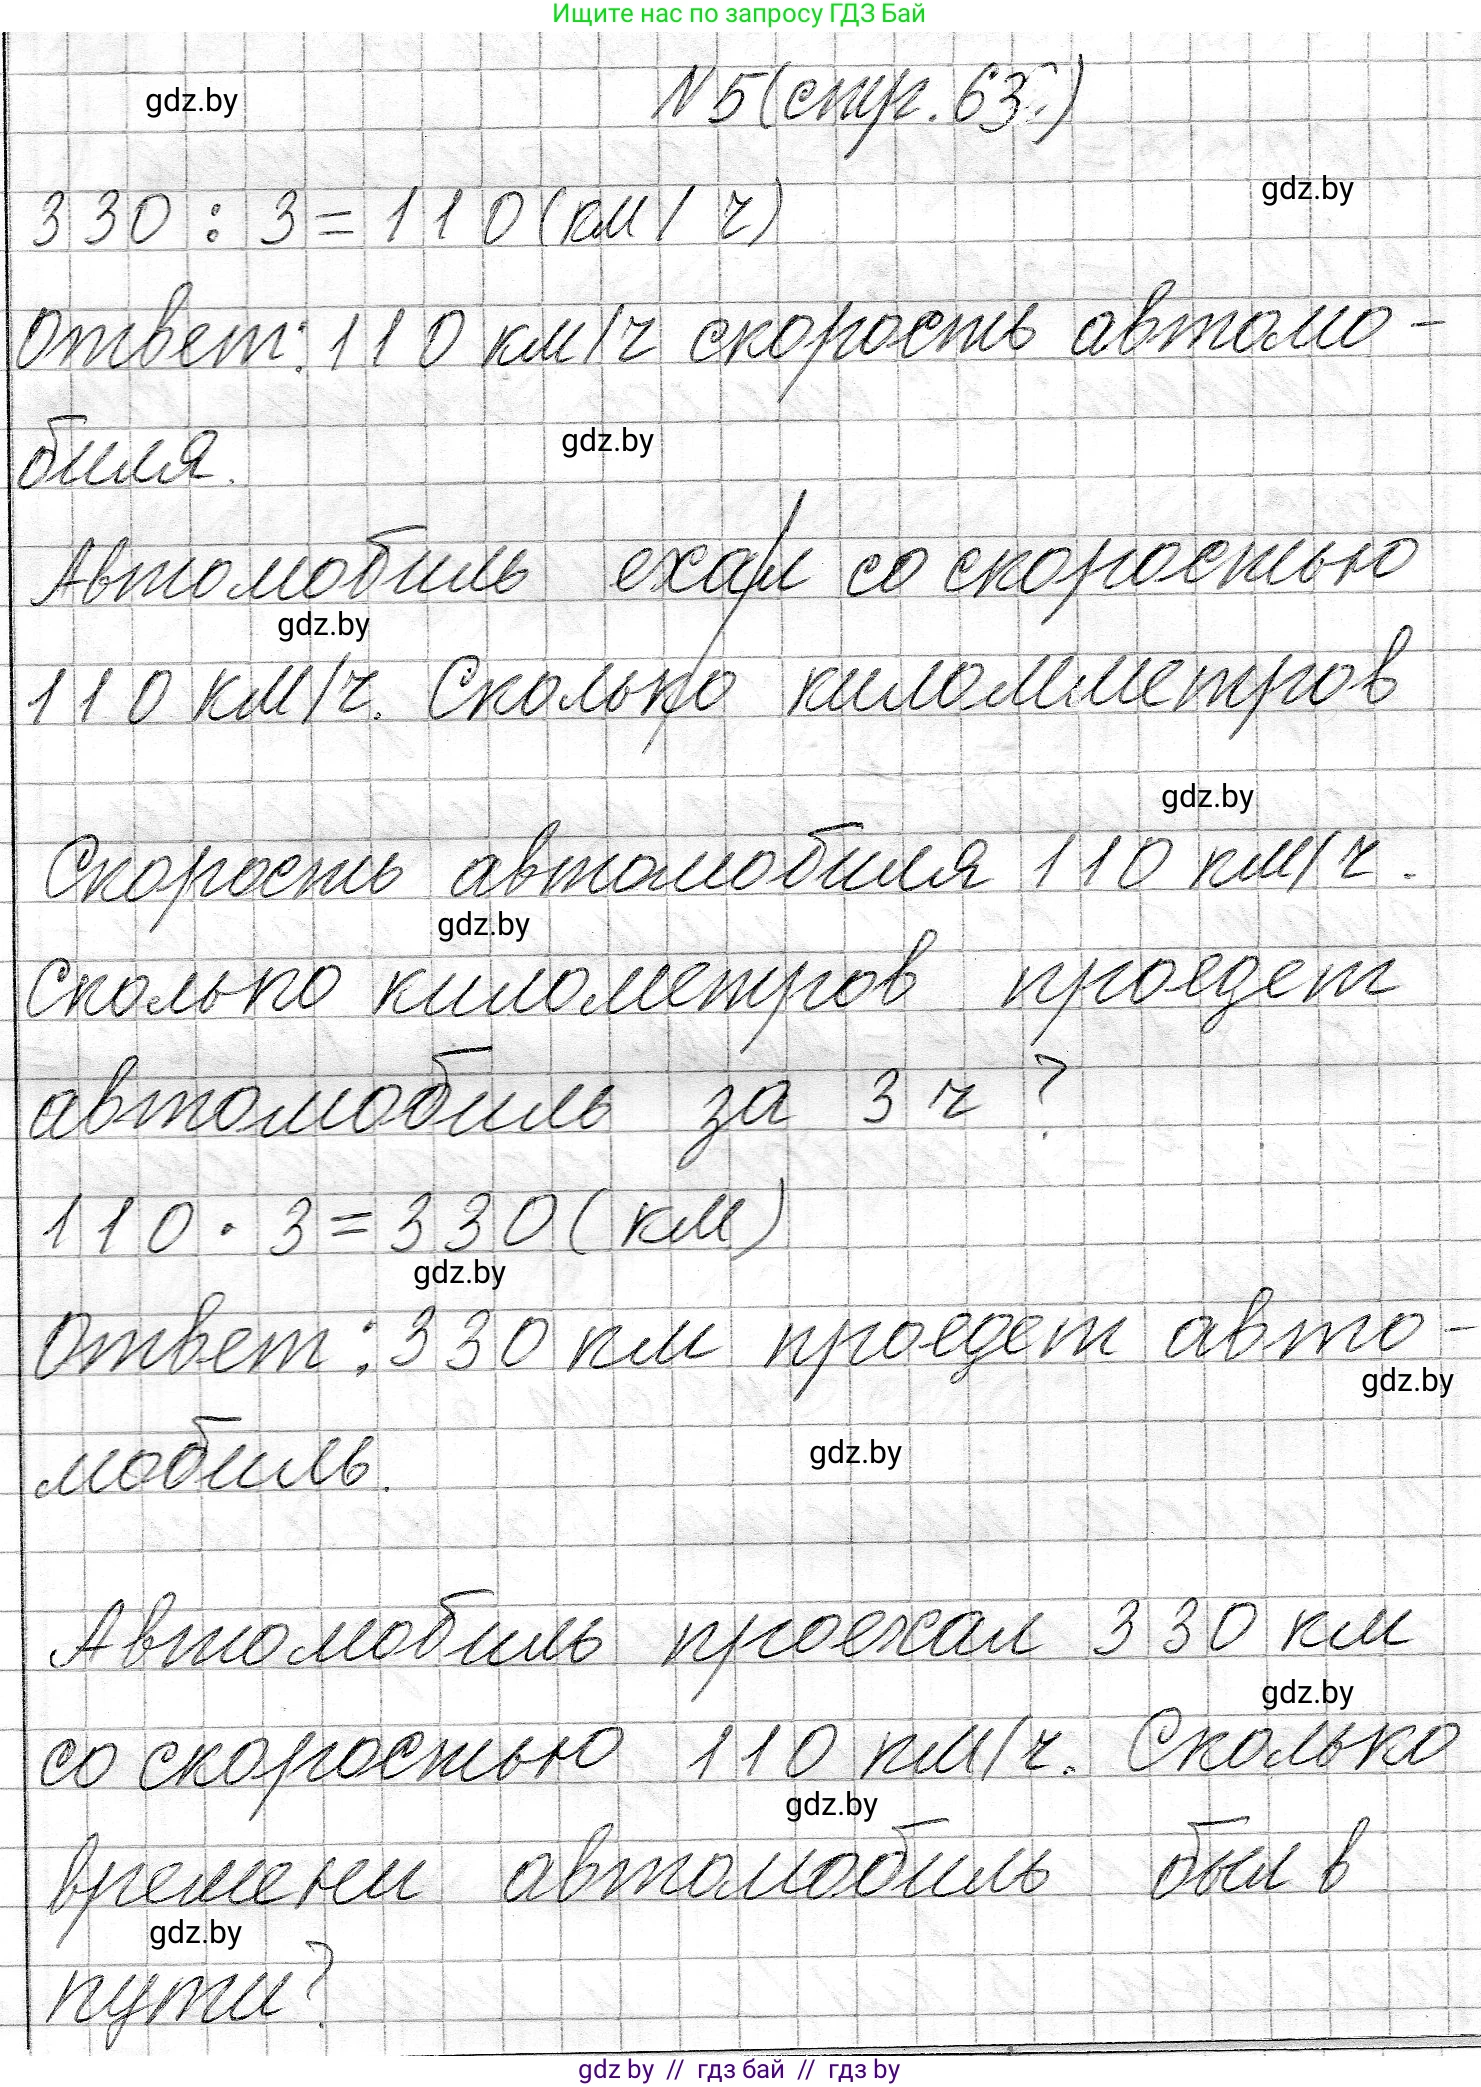 Ищите нас по запросу ГДЗ Бай
N 5 (стр. 63.)
gdz.by
gdz.by
330 : 3 = 110 (км / ч)
Ответ: 110 км/ч скорость автомо-
биля.
gdz.by
Автомобиль ехал со скоростью
gdz.by
110 км/ч. Сколько километров
gdz.by
Скорость автомобиля 110 км/ч.
gdz.by
Сколько километров проедет
автомобиль за 3 ч ?
110 · 3 = 330 (км)
gdz.by
Ответ: 330 км проедет авто-
gdz.by
мобиль.
gdz.by
Автомобиль проехал 330 км
gdz.by
со скоростью 110 км/ч. Сколько
gdz.by
времени автомобиль был в
gdz.by
пути?
gdz by // гдз бай // гдз by